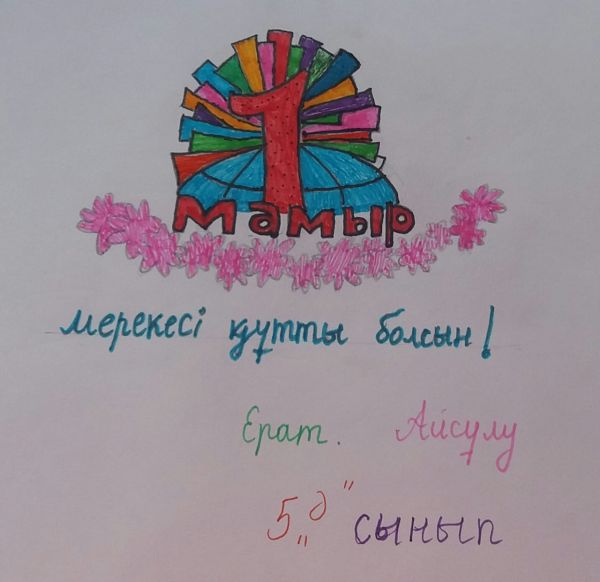 1
мамыр
мерекесі құтты болсын!
Ерат. Айсұлу
5 „д" сынып